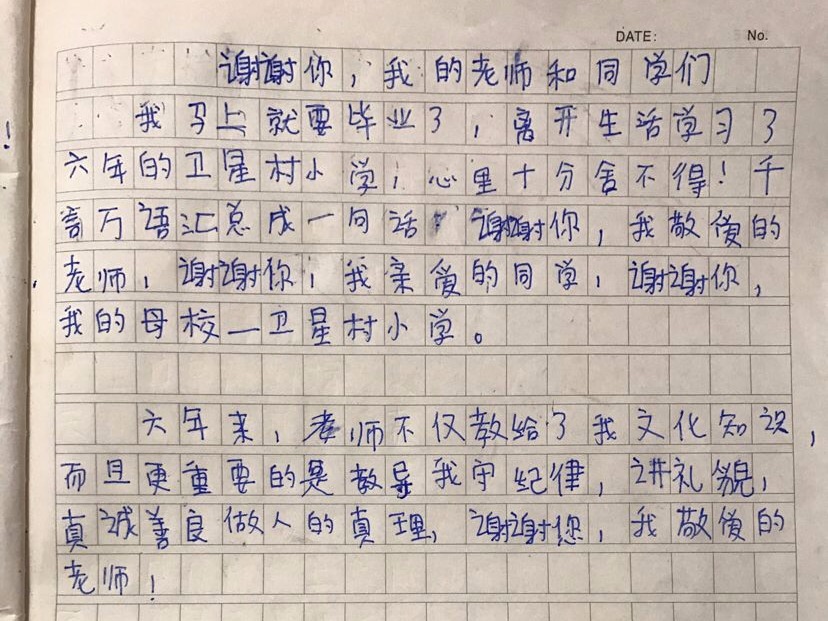 DATE: No.
谢谢你，我的老师和同学们
我马上就要毕业了，离开生活学习了
六年的卫星村小学，心里十分舍不得！千
言万语汇总成一句话 谢谢你，我敬俊的
老师，谢谢你，我亲爱的同学，谢谢你，
我的母校—卫星村小学。
六年来，老师不仅教给了我文化知识，
而且更重要的是教导我守纪律，讲礼貌，
真诚善良做人的真理，谢谢您，我敬俊的
老师！
！